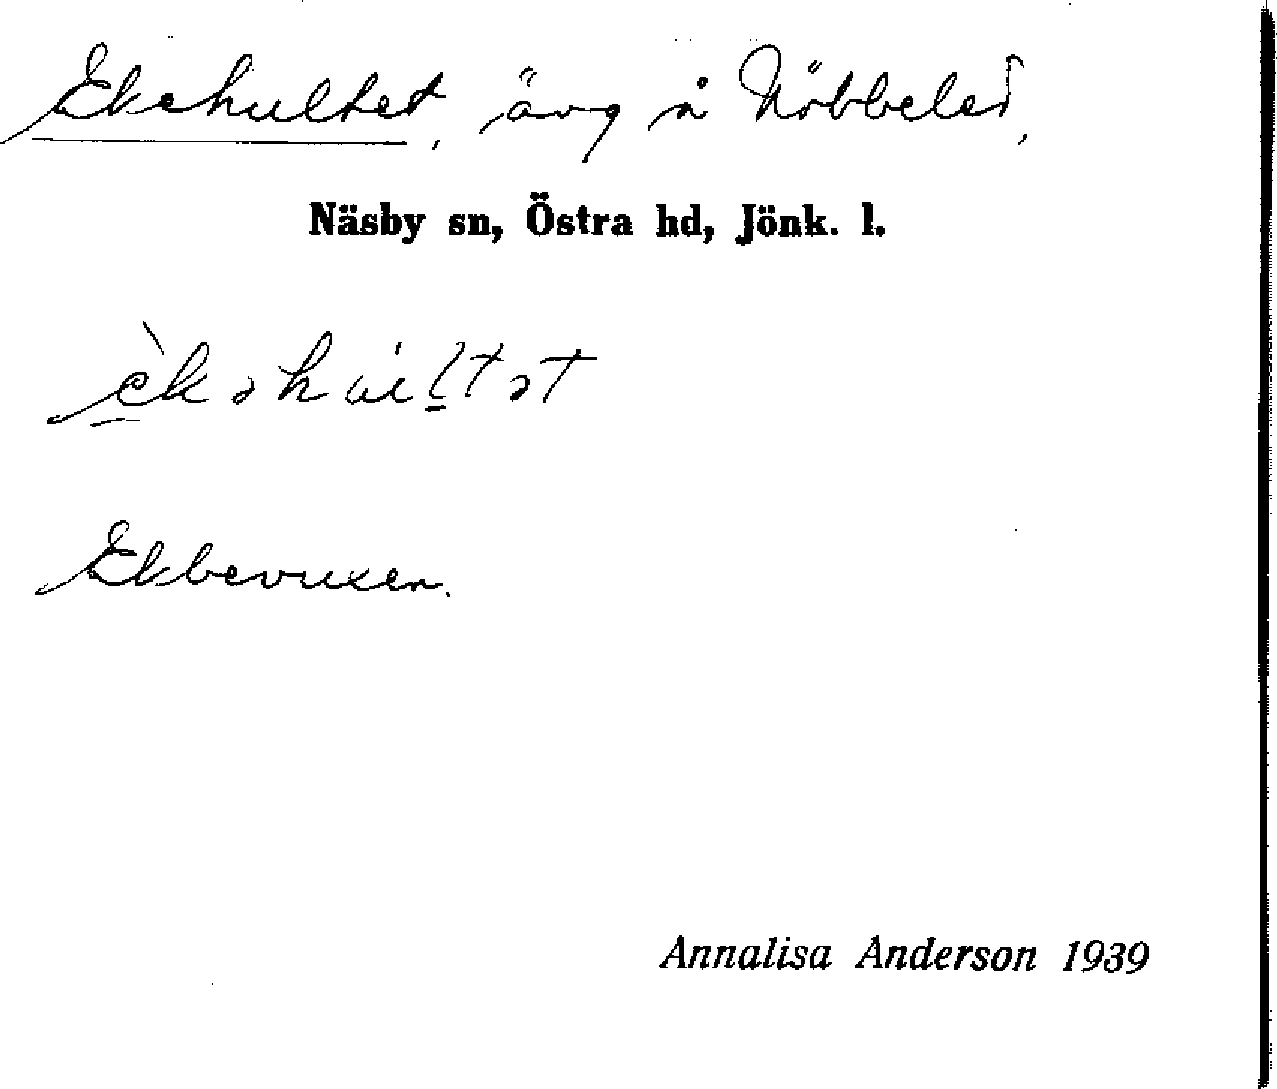 Ekehultet, äng å Nöbbeled,
Näsby sn, Östra hd, Jönk. l.
Ekbevuxen.
Annalisa Anderson 1939